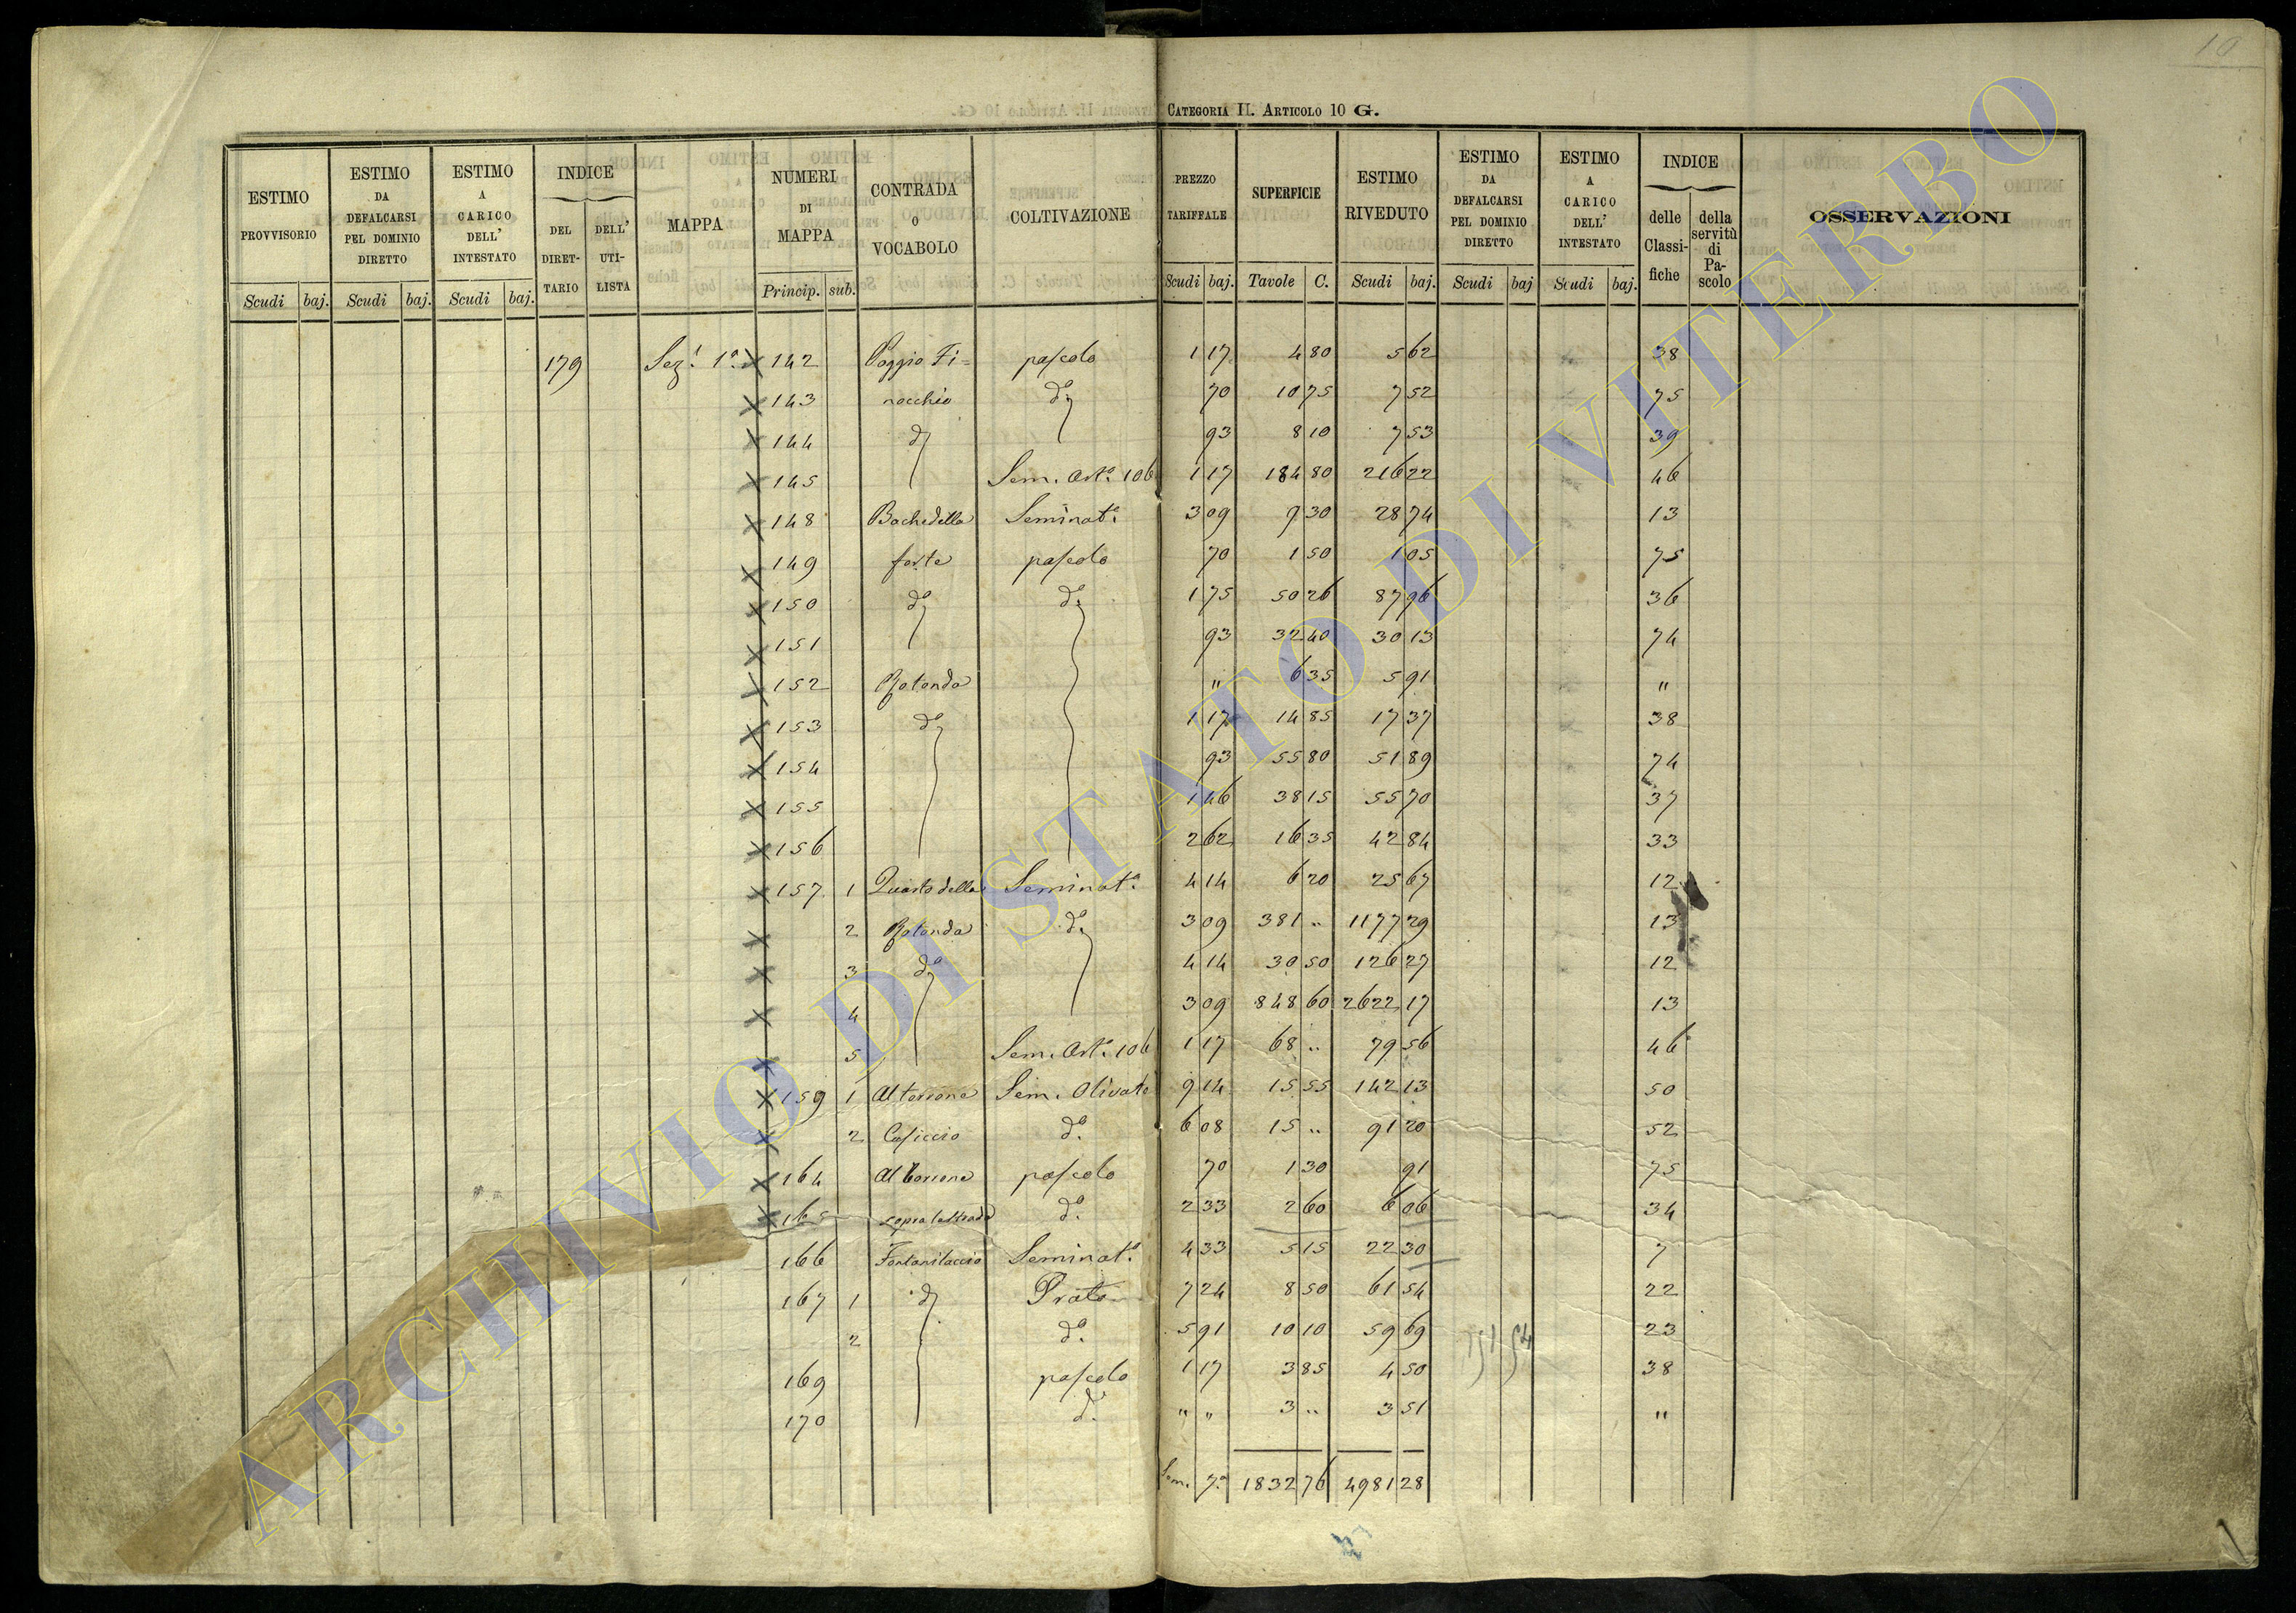 10
CATEGORIA II. ARTICOLO 10 G.
ESTIMO PROVVISORIO Scudi baj.
ESTIMO DA DEFALCARSI PEL DOMINIO DIRETTO Scudi baj.
ESTIMO A CARICO DELL' INTESTATO Scudi baj.
INDICE DEL DIRETTARIO DELL' UTILISTA
MAPPA
NUMERI DI MAPPA Princip. sub.
CONTRADA O VOCABOLO
COLTIVAZIONE
PREZZO TARIFFALE Scudi baj.
SUPERFICIE Tavole C.
ESTIMO RIVEDUTO Scudi baj.
ESTIMO DA DEFALCARSI PEL DOMINIO DIRETTO Scudi baj
ESTIMO A CARICO DELL' INTESTATO Scudi baj.
INDICE delle Classifiche della servitù di Pascolo
OSSERVAZIONI
179 Sez.e 1a. X 142 Poggio Fi= pascolo 1 17 4 80 5 62 38
X 143 nocchio do 70 10 75 7 52 75
X 144 do 93 8 10 7 53 39
X 145 Sem. Arto. 106 1 17 184 80 216 22 46
X 148 Bachedella Seminato. 3 09 9 30 28 74 13
X 149 forte pascolo 70 1 50 1 05 75
X 150 do do. 1 75 50 26 87 96 36
X 151 93 32 40 30 13 74
X 152 Rotonda " 6 35 5 91 "
X 153 do 1 17 14 85 17 37 38
X 154 93 55 80 51 89 74
X 155 1 46 38 15 55 70 37
X 156 2 62 16 35 42 84 33
X 157 1 Quarto della Seminato. 4 14 6 20 25 67 12
X 2 Rotonda do. 3 09 381 .. 1177 29 13
X 3 do 4 14 30 50 126 27 12
X 4 3 09 848 60 2622 17 13
X 5 Sem. Arto. 106 1 17 68 .. 79 56 46
X 159 1 Al torrone Sem. Olivato 9 14 15 55 142 13 50
X 2 Casiccio do. 6 08 15 .. 91 20 52
X 164 Al torrone pascolo 70 1 30 91 75
X 165 sopra la strada do. 2 33 2 60 6 06 34
166 Fontanilaccio Seminato. 4 33 5 15 22 30 7
167 1 do Prato 7 24 8 50 61 54 22
2 do. 5 91 10 10 59 69 23
169 pascolo 1 17 3 85 4 50 38
170 do. " " 3 .. 3 51 "
151 54
Som. 7a. 1832 76 4981 28
ARCHIVIO DI STATO DI VITERBO